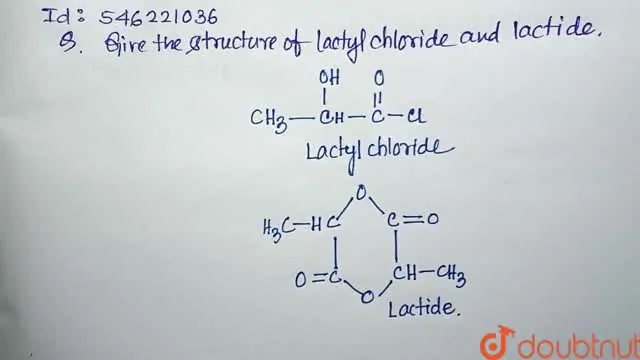 Id: 546221036
Q. Give the structure of lactyl chloride and lactide.
OH O
CH3-CH-C-Cl
Lactyl chloride
O
H3C-HC C=O
O=C CH-CH3
O
Lactide.
doubtnut